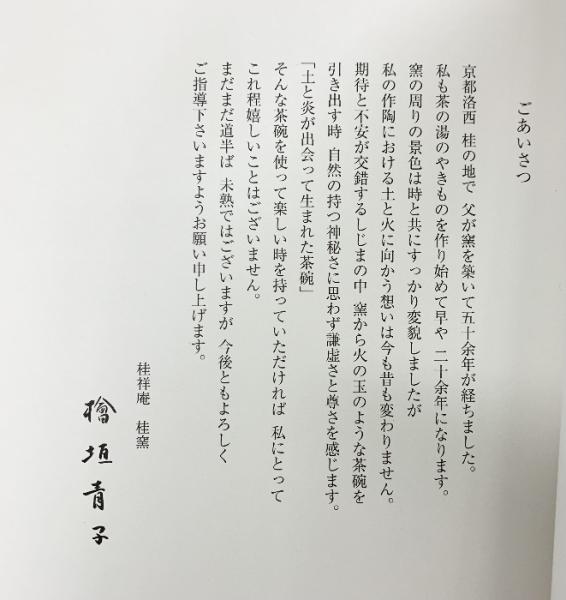 ごあいさつ
京都洛西 桂の地で 父が窯を築いて五十余年が経ちました。
私も茶の湯のやきものを作り始めて早や 二十余年になります。
窯の周りの景色は時と共にすっかり変貌しましたが
私の作陶における土と火に向かう想いは今も昔も変わりません。
期待と不安が交錯するしじまの中 窯から火の玉のような茶碗を
引き出す時 自然の持つ神秘さに思わず謙虚さと尊さを感じます。
「土と炎が出会って生まれた茶碗」
そんな茶碗を使って楽しい時を持っていただければ 私にとって
これ程嬉しいことはございません。
まだまだ道半ば 未熟ではございますが 今後ともよろしく
ご指導下さいますようお願い申し上げます。
桂祥庵 桂窯
檜垣青子